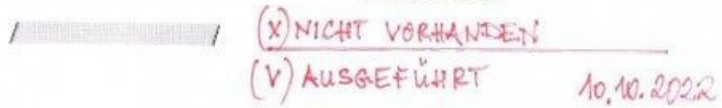 (X) NICHT VORHANDEN
(V) AUSGEFÜHRT 10.10.2022